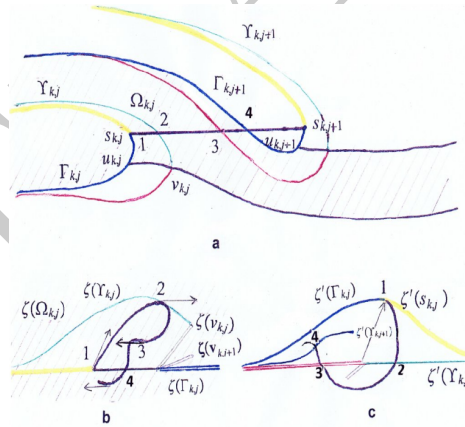 Υ_{k,j+1}
Υ_{k,j} Ω_{k,j} Γ_{k,j+1}
2 4
s_{k,j} s_{k,j+1}
1 3 u_{k,j+1}
u_{k,j}
Γ_{k,j} v_{k,j}
a
b
ζ(Ω_{k,j}) ζ(Υ_{k,j}) 2
ζ(v_{k,j})
1 3 ζ(v_{k,j+1})
4 ζ(Γ_{k,j})
c
ζ'(Γ_{k,j}) 1 ζ'(s_{k,j})
4 ζ'(Υ_{k,j+1})
3 2 ζ'(Υ_{k,